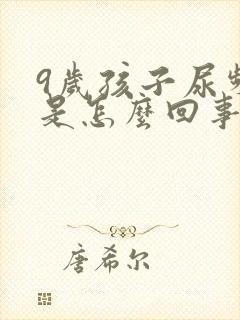 9歲孩子尿頻
是怎麼回事
唐希尔